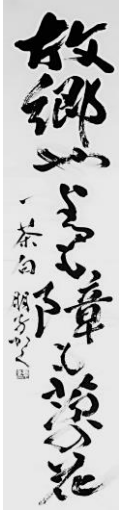 故郷やよるも障も茨の花
一茶句